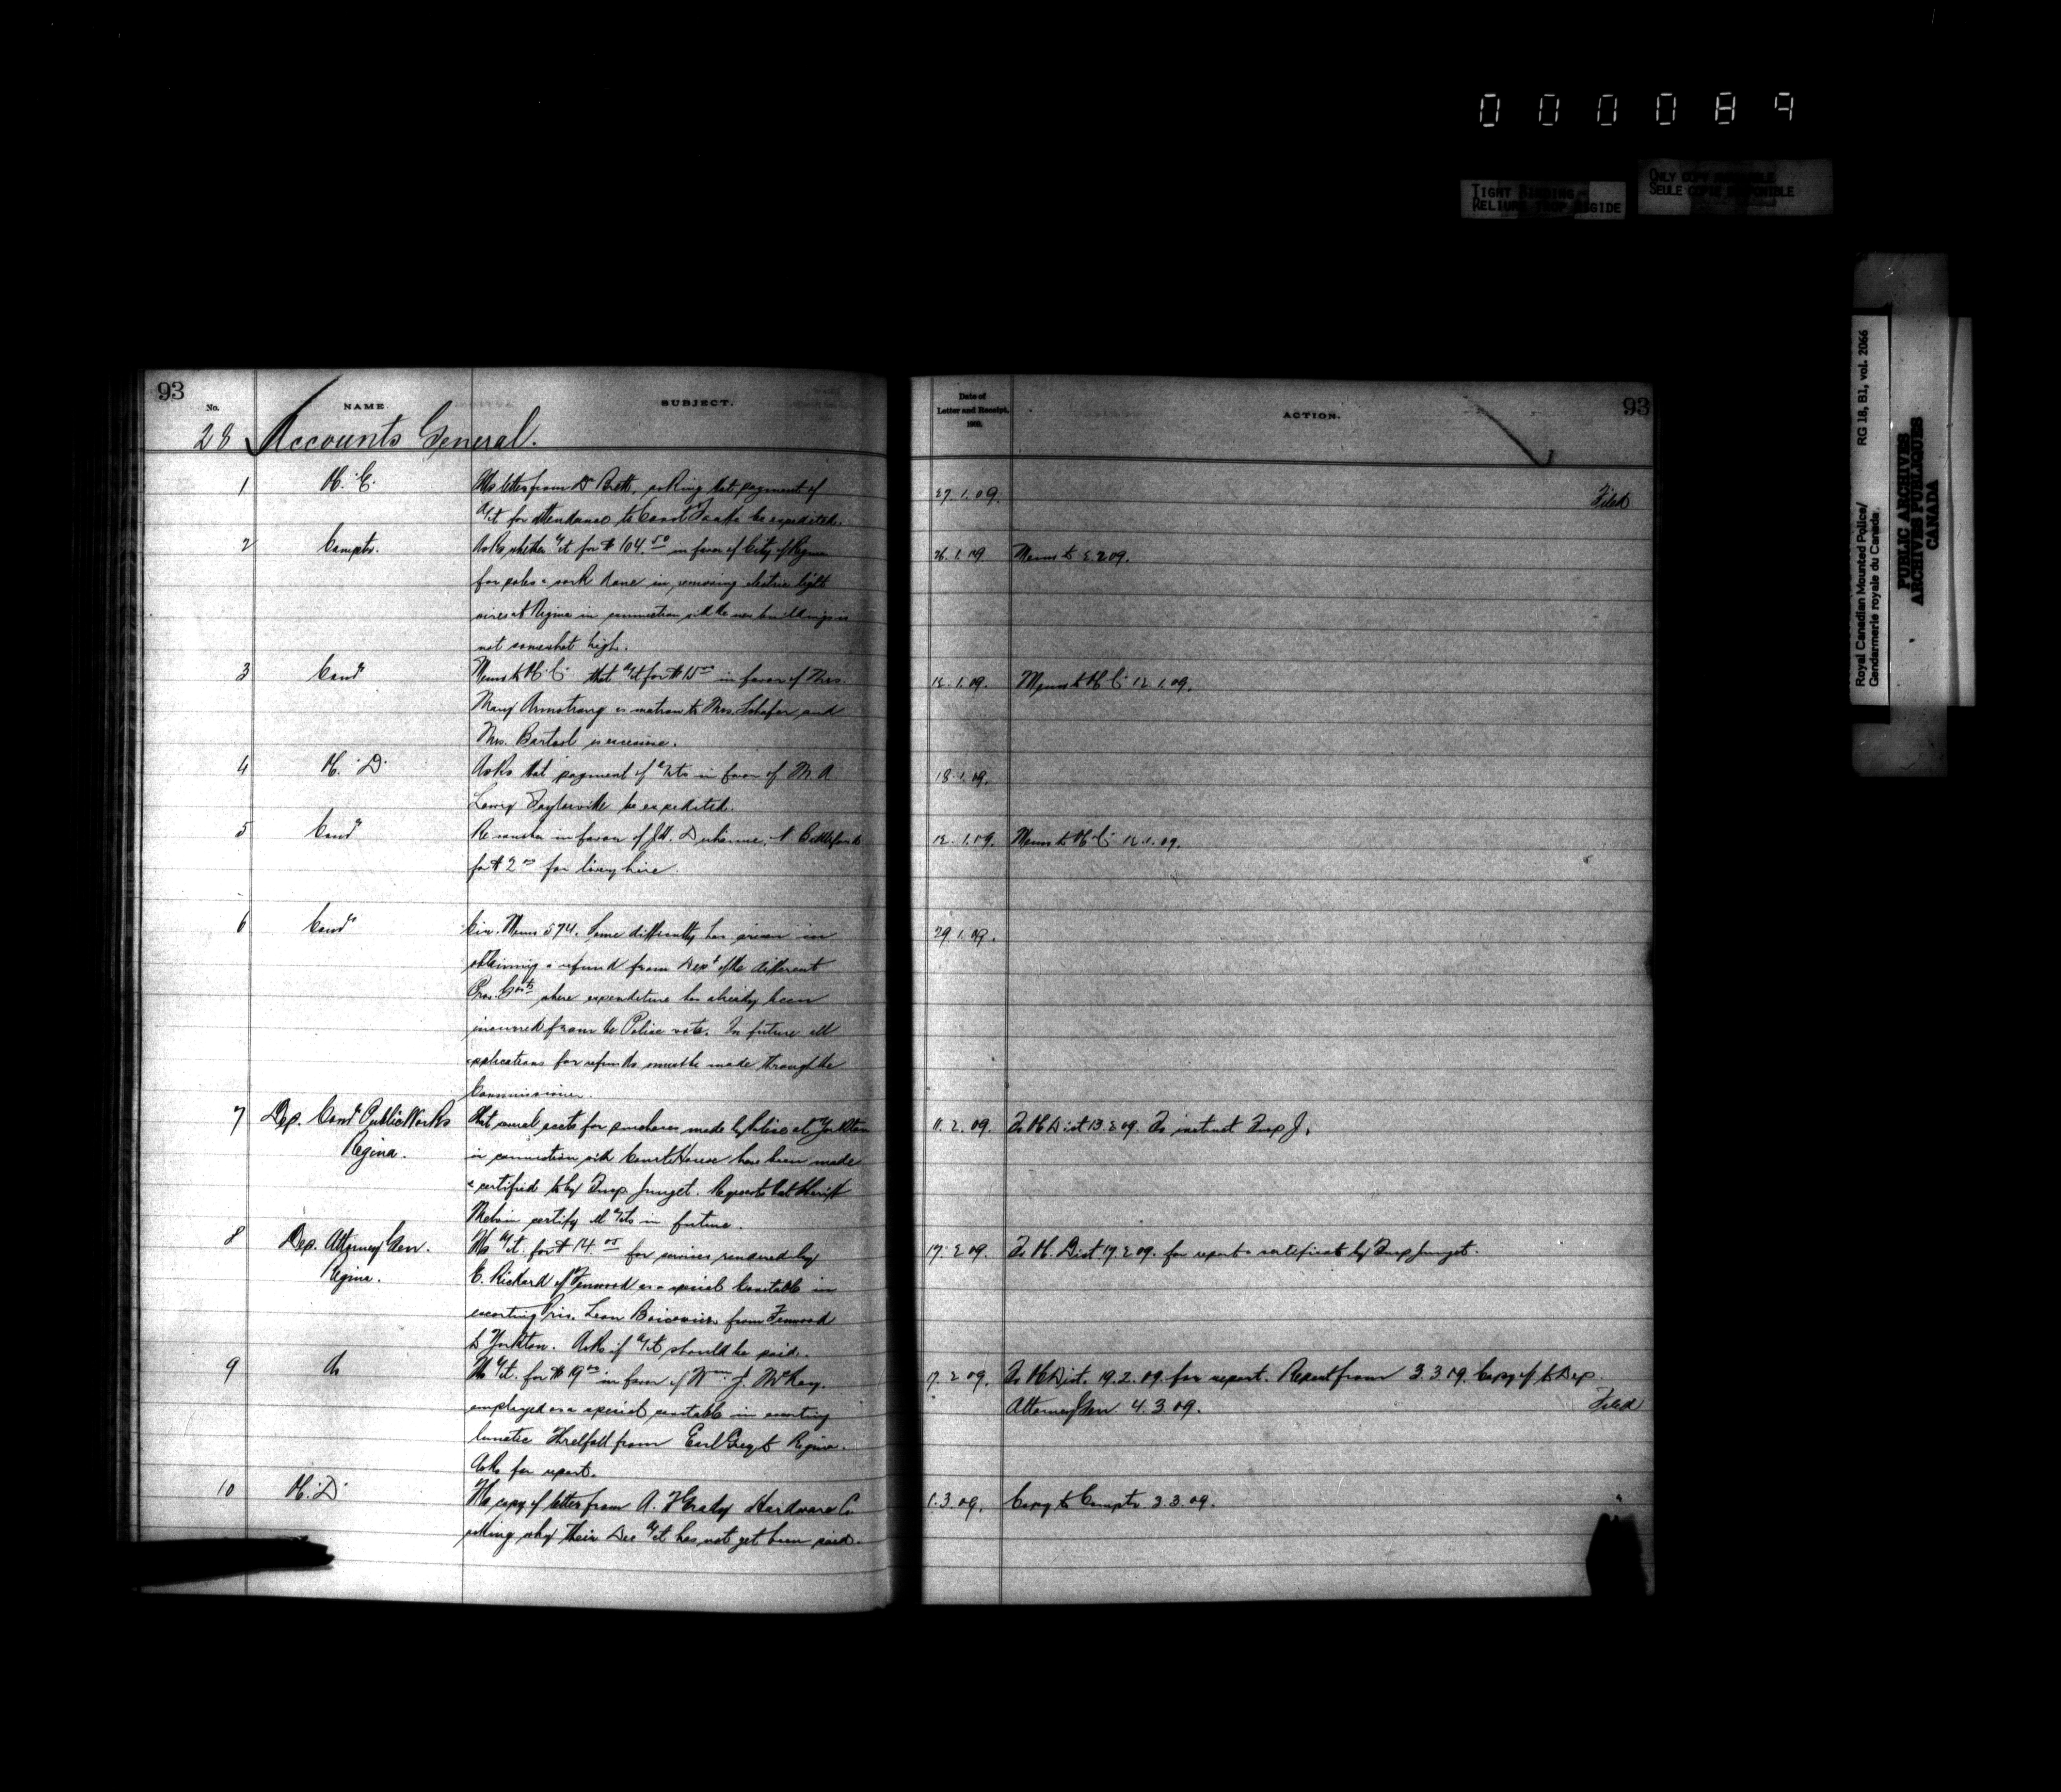 000089
TIGHT BINDING
RELIURE TROP RIGIDE
ONLY COPY AVAILABLE
SEULE COPIE DISPONIBLE
Royal Canadian Mounted Police/ RG 18, B1, vol. 2066
Gendarmerie royale du Canada
PUBLIC ARCHIVES
ARCHIVES PUBLIQUES
CANADA
93
No. NAME. SUBJECT.
28 Accounts General.
1 letter from Dr Brett, asking that payment of
a/ct for attendance to Const be expedited.
2 Comptr. Asks whether a/ct for $104.50 in favor of City of Regina
for poles & work done in removing electric light
wires at Regina in connection with the new buildings is
not somewhat high.
3 Comr Memo to that a/ct for $15 in favor of Mrs.
Mary Armstrong as matron to Mrs. Schafer and
Mrs. is excessive.
4 "D" Asks that payment of a/cts in favor of M. A.
Lowry Taylorville be expedited.
5 Comr Re voucher in favor of Battleford
for $2 for livery hire.
6 Comr Cir. Memo 574. Some difficulty has arisen in
obtaining a refund from Dept of the different
Prov. Govts where expenditure has already been
incurred from the Police vote. In future all
applications for refunds must be made through the
Commissioner.
7 Dep. Comr Public Works That accts for purchases made by Police at Yorkton
Regina. in connection with Court House have been made
& certified to by Insp. Junget. Requests that Sheriff
certify all a/cts in future.
8 Dep. Attorney Gen. a/ct. for $14. for services rendered by
Regina. C. Rickard of Fenwood as a special Constable in
escorting Pris. Leon from Fenwood
to Yorkton. Asks if a/ct should be paid.
9 do a/ct. for $19 in favor of Wm. J. McKay.
employed as a special constable in escorting
lunatic Threlfall from Earl Grey to Regina.
Asks for report.
10 "D" copy of letter from Hardware Co
asking why their Dec a/ct has not yet been paid.
Date of
Letter and Receipt.
1909.
ACTION.
93
27.1.09. Filed
26.1.09 Memo to 2.2.09.
12.1.09. Memo to 12.1.09.
18.1.09.
12.1.09. Memo to 12.1.09.
29.1.09.
11.2.09. To Dist 13.2.09. To instruct Insp J.
17.2.09. To Dist 17.2.09. for report & certificate by Insp Junget.
17.2.09. To Dist. 19.2.09. for report. Report from 3.3.09. Copy of to Dep
Attorney Gen 4.3.09. Filed
1.3.09. Copy to Comptr 3.3.09. "